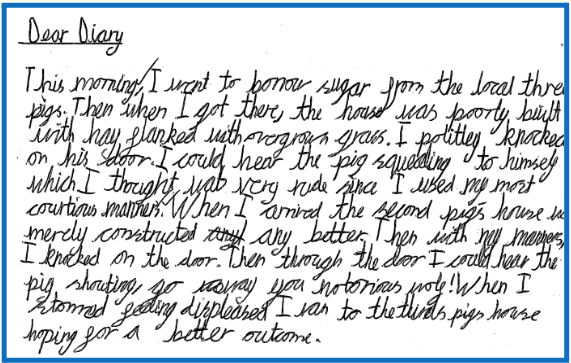 Dear Diary
This morning, I went to borrow sugar from the local three
pigs. Then when I got there, the house was poorly built
with hay flanked with overgrown grass. I politley knocked
on his door. I could hear the pig squealing to himself
which I thought was very rude since I used my most
courtious manners. When I arrived the second pigs house
merely constructed any better. Then with my manners,
I knocked on the door. Then through the door I could hear the
pig shouting, go away you notorious wolf! When I
stormed feeling displeased I ran to the thirds pigs house
hoping for a better outcome.